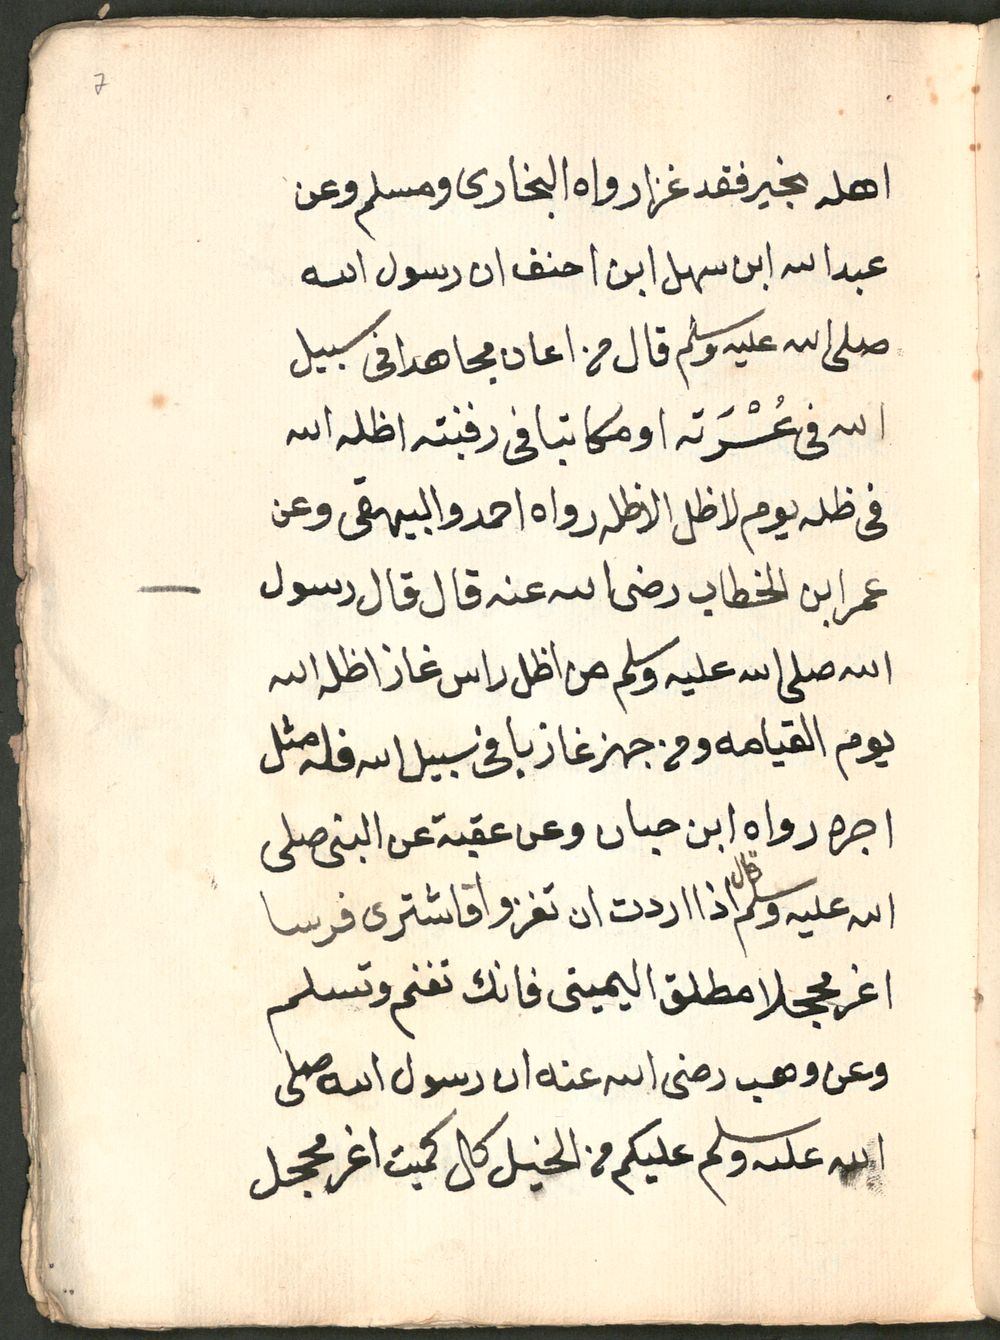 7
اهله بخير فقد غزا رواه البخارى ومسلم وعن
عبد الله ابن سهل ابن احنف ان رسول الله
صلى الله عليه وسلم قال من اعان مجاهدا فى سبيل
الله فى عُسْرَته او مكاتبا فى رقبته اظله الله
فى ظله يوم لا ظل الا ظله رواه احمد والبيهقى وعن
عمر ابن الخطاب رضى الله عنه قال قال رسول
الله صلى الله عليه وسلم من اظل راس غاز اظله الله
يوم القيامه ومن جهز غازيا فى سبيل الله فله مثل
اجره رواه ابن حبان وعن عقبة عن النبى صلى
الله عليه وسلم قال اذا اردت ان تغزوا فاشترى فرسا
اغر محجلا مطلق اليمينى فانك تغنم وتسلم
وعن وهب رضى الله عنه ان رسول الله صلى
الله عليه وسلم عليكم من الخيل كل كميت اغر محجل